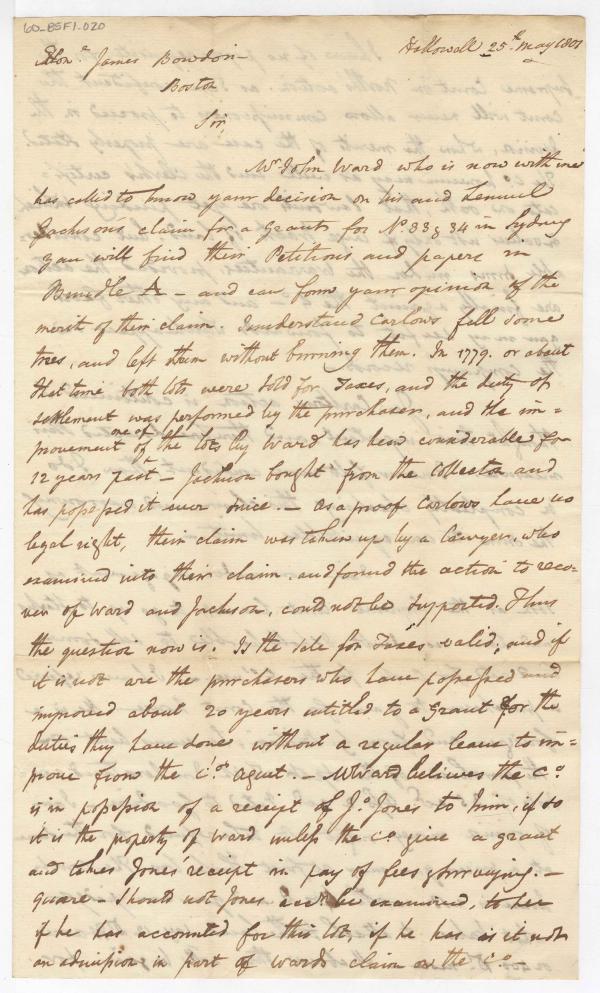 60-BSF1.020
Hallowell 25th May 1801
Honle James Bowdoin
Boston
Sir,
Mr John Ward who is now with me
has called to know your decision on his and Lemuel
Jackson's claim for a grants for No 33 & 34 in Sydney
you will find their Petitions and papers in
Bundle A - and can form your opinion of the
merit of their claim. I understand Carlows fell some
trees, and left them without burning them. In 1779. or about
that time both lots were sold for Taxes, and the duty of
settlement was performed by the purchasers, and the im=
provement one of of the lots by Ward has been considerable for
12 years past - Jackson bought from the Collector and
has possessed it ever since. - As a proof Carlows have no
legal right, their claim was taken up by a Lawyer, who
examined into their claim, and found the action to reco=
ver of Ward and Jackson, could not be supported. Thus
the question now is. Is the sale for Taxes valid, and if
it is not are the purchasers who have possessed and
improved about 20 years intitled to a Grant for the
duties they have done without a regular leave to im=
prove from the Cos agent. - Mr Ward believes the Co.
is in possession of a receipt of Jo Jones to him, if so
it is the property of Ward unless the Co give a grant
and takes Jones' receipt in pay of fees & surveying. -
quare - Should not Jones acct be examined, to see
if he has accounted for this lot, if he has is it not
an admission in part of Wards claim on the Co. -